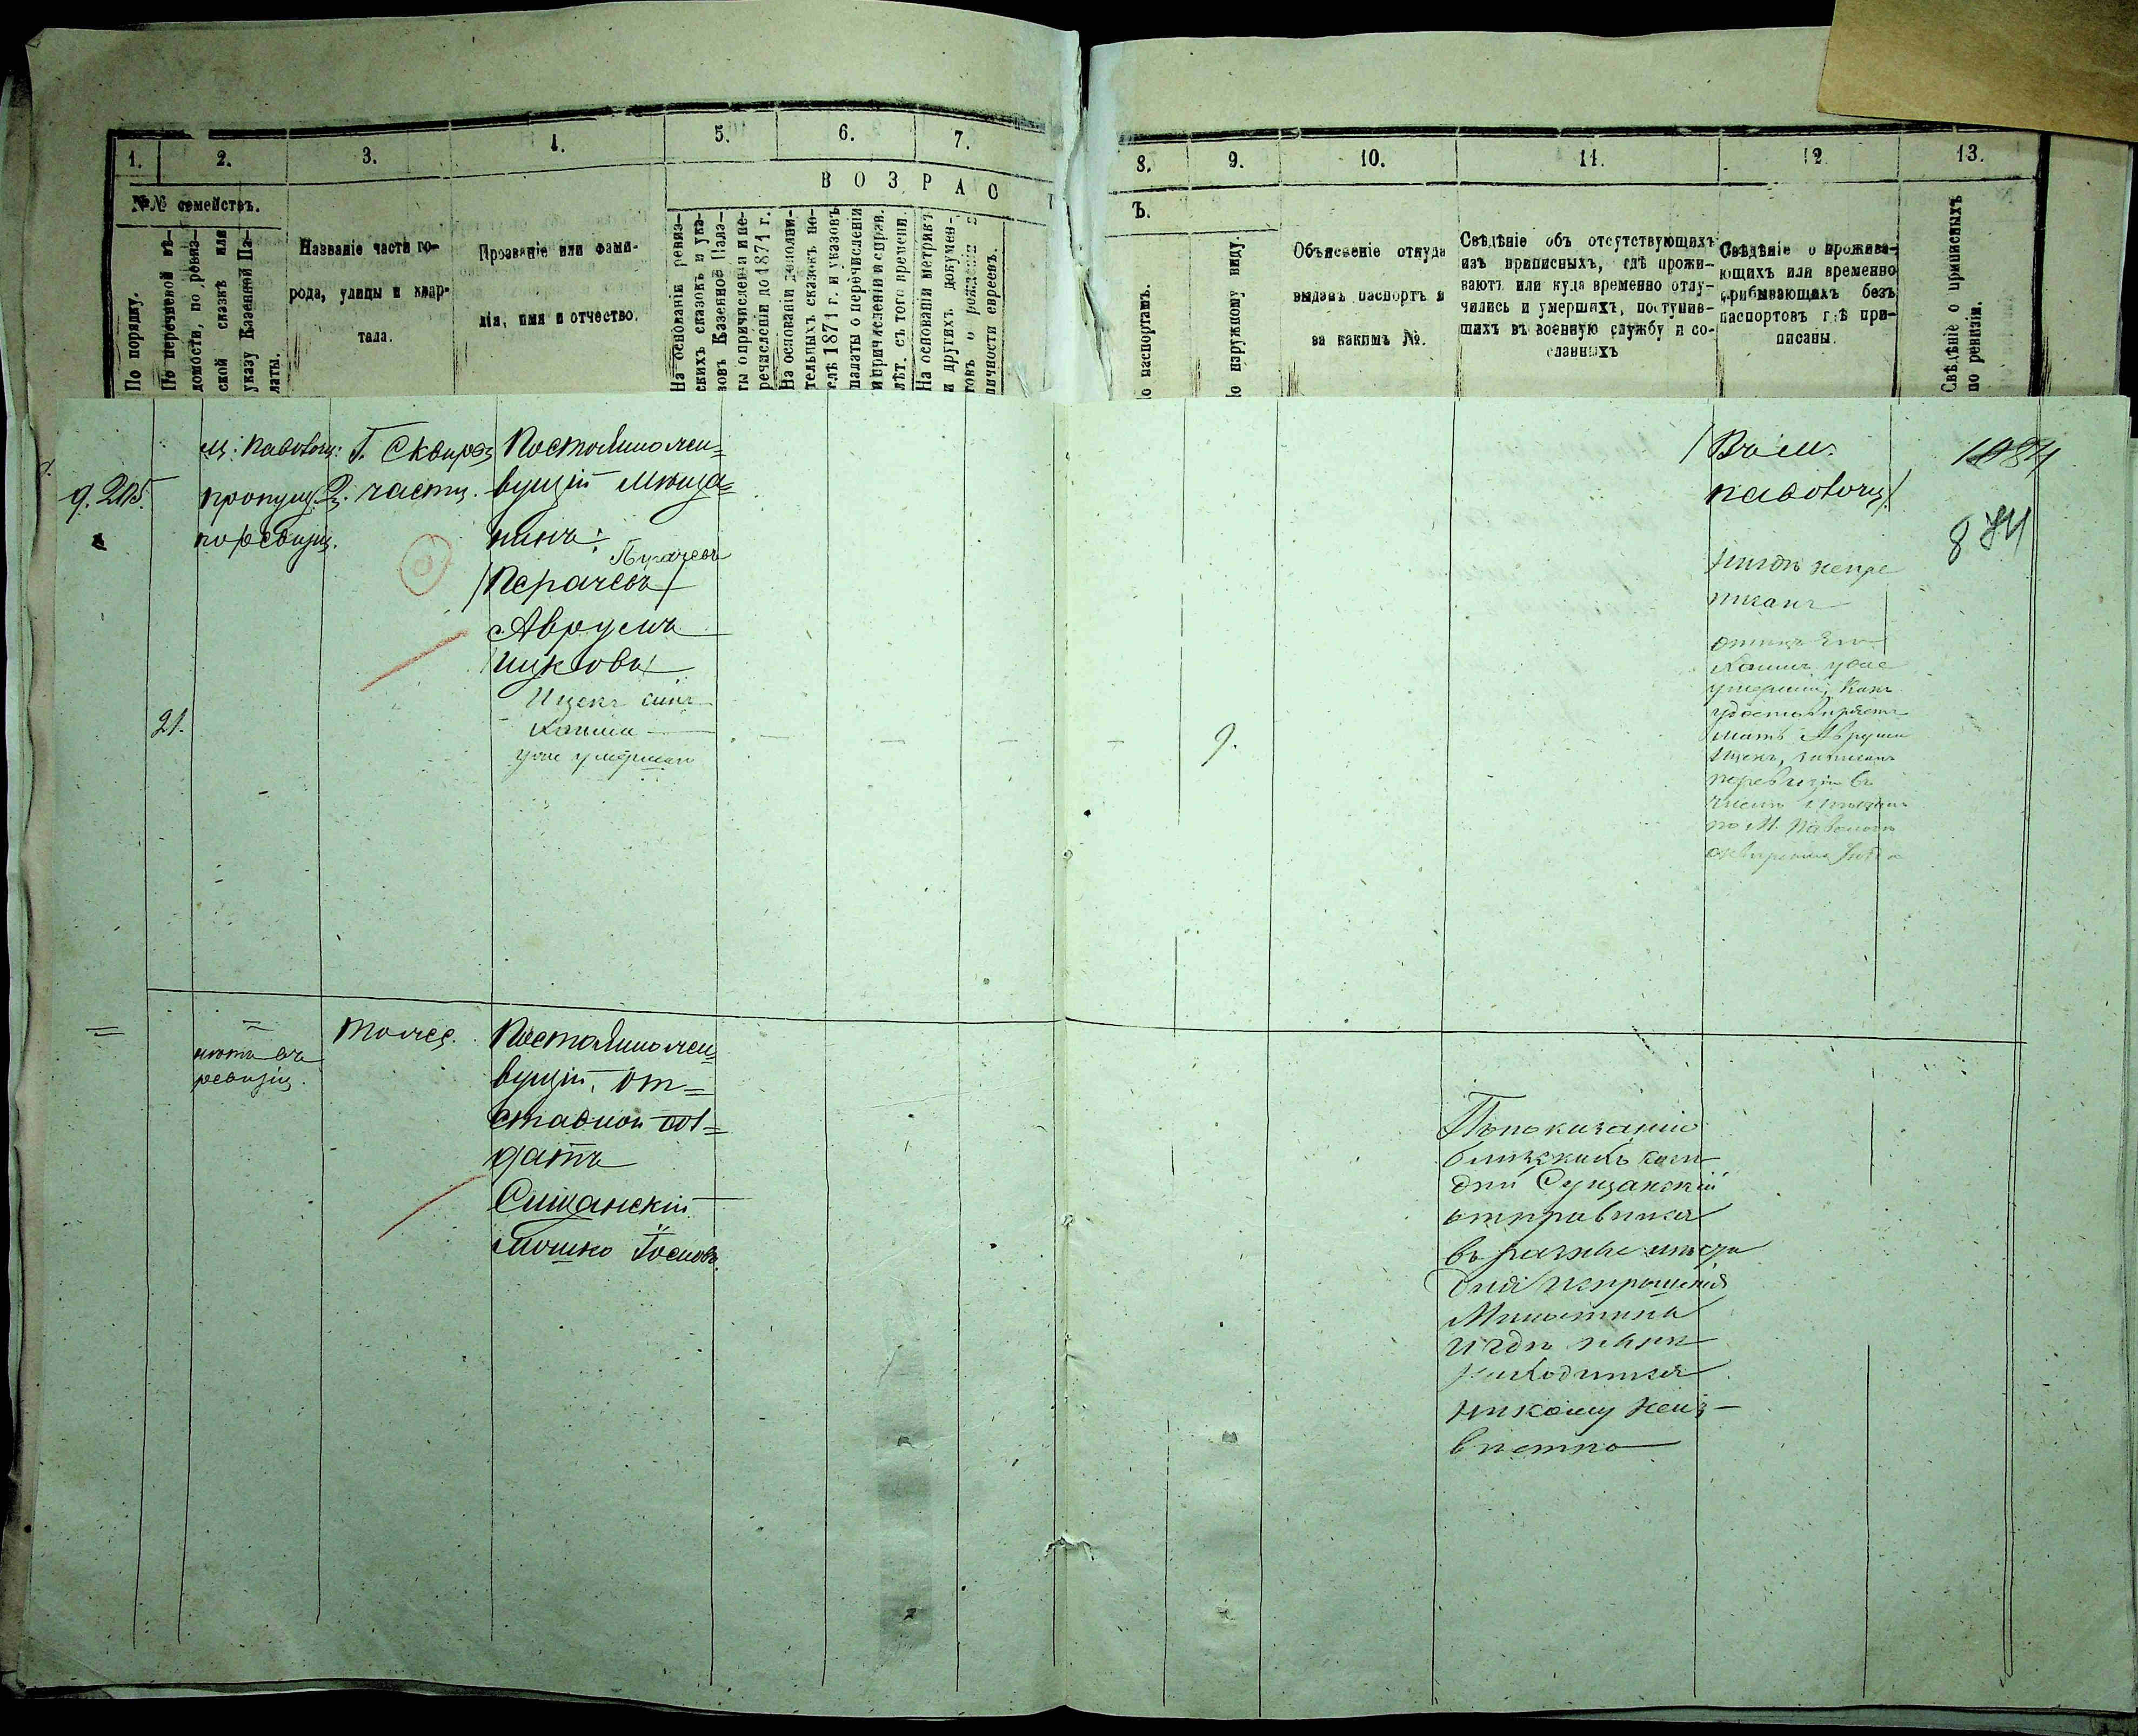 1.
2.
3.
4.
5.
6.
7.
8.
9.
10.
11.
12
13.
ВОЗРАС
Т
Ъ.
№№ семействъ.
По порядку.
По перечневой вѣ-
домости, по ревиз-
ской сказкѣ или
указу Казенной Па-
латы.
Названіе части го-
рода, улицы и квар-
тала.
Прозваніе или фами-
лія, имя и отчество.
На основаніи ревиз-
скихъ сказокъ и ука-
зовъ Казенной Пала-
ты о причисленіи и пе-
речисленіи до 1871 г.
На основаніи дополни-
тельныхъ сказокъ по-
слѣ 1871 г. и указовъ
палаты о перечисленіи
и причисленіи и справ.
лѣт. съ того времени.
На основаніи метрикъ
и другихъ докумен-
товъ о рожденіи и
личности евреевъ.
о паспортамъ.
о наружному виду.
Объясненіе откуда
выданъ паспортъ и
за какимъ №.
Свѣдѣніе объ отсутствующихъ
изъ приписныхъ, гдѣ прожи-
ваютъ или куда временно отлу-
чились и умершихъ, поступив-
шихъ въ военную службу и со-
сланныхъ
Свѣдѣніе о прожива-
ющихъ или временно
прибывающихъ безъ
паспортовъ гдѣ при-
писаны.
Свѣдѣніе о приписныхъ
по ревизіи.
м. Паволоч:
пропущ.
по ревизіи.
Г. Сквира
2. части.
Постоянно жи=
вущій мѣща=
нинъ:
Пугачевъ
Аврумъ
Ицковъ
Ицекъ сынъ
Хаима
уже умершаго
21.
9.
Въ м.
Паволочи
нигдѣ непри
писанъ
отецъ Его
Хаимъ уже
умершій, какъ
мать Аврума
Ицекъ, записанъ
по ревизіи въ
числѣ мѣщанъ
по М. Паволочь
874
=
=
нѣтъ въ
ревизіи.
тоже.
Постоянно жи=
вущій, от=
ставной сол=
датъ
Сищанскій
Мошко Іосиовъ.
По показанію
отправился
въ разные мѣста
для испрошенія
Милостыни
и гдѣ нынѣ
находится
никому неиз-
вѣстно